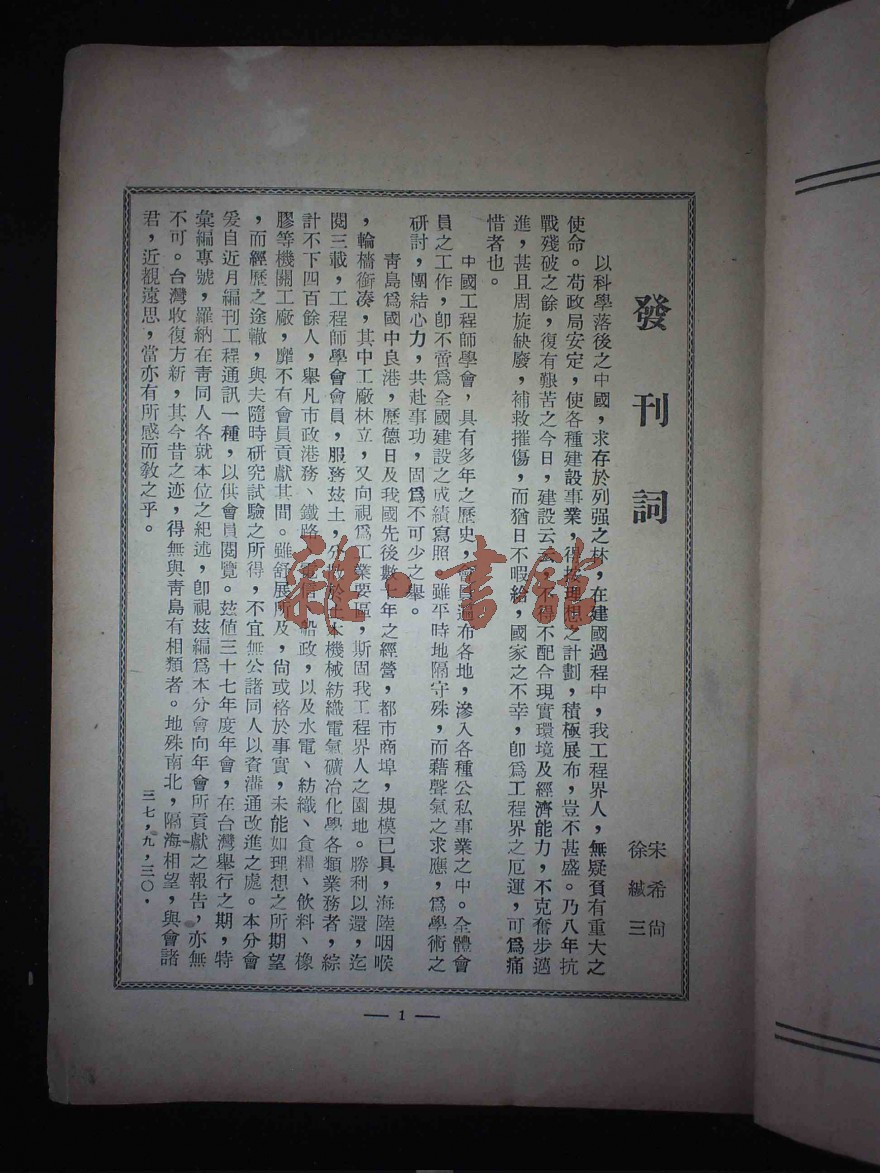 發刊詞
宋希尙
徐緘三
以科學落後之中國，求存於列强之林，在建國過程中，我工程界人，無疑負有重大之
使命。苟政局安定，使各種建設事業，得按理想之計劃，積極展布，豈不甚盛。乃八年抗
戰殘破之餘，復有艱苦之今日，建設云云，不得不配合現實環境及經濟能力，不克奮步邁
進，甚且周旋缺廢，補救摧傷，而猶日不暇給，國家之不幸，卽爲工程界之厄運，可爲痛
惜者也。
中國工程師學會，具有多年之歷史，會員遍布各地，滲入各種公私事業之中。全體會
員之工作，卽不啻爲全國建設之成績寫照，雖平時地隔守殊，而藉聲氣之求應，爲學術之
研討，團結心力，共赴事功，固爲不可少之舉。
靑島爲國中良港，歷德日及我國先後數十年之經營，都市商埠，規模已具，海陸咽喉
，輪檣銜凑，其中工廠林立，又向視爲工業要區，斯固我工程界人之園地。勝利以還，迄
閱三載，工程師學會會員，服務茲土，分佈於土木機械紡織電氣礦冶化學各類業務者，綜
計不下四百餘人，舉凡市政港務、鐵路、電信、船政，以及水電、紡織、食糧、飲料、橡
膠等機關工廠，靡不有會員貢獻其間。雖舒展所及，尙或格於事實，未能如理想之所期望
，而經歷之途轍，與夫隨時研究試驗之所得，不宜無公諸同人以資溝通改進之處。本分會
爰自近月編刊工程通訊一種，以供會員閱覽。茲値三十七年度年會，在台灣舉行之期，特
彙編專號，羅納在靑同人各就本位之紀述，卽視茲編爲本分會向年會所貢獻之報告，亦無
不可。台灣收復方新，其今昔之迹，得無與靑島有相類者。地殊南北，隔海相望，與會諸
君，近觀遠思，當亦有所感而敎之乎。
三七，九，三〇．
— 1 —
雜·書館